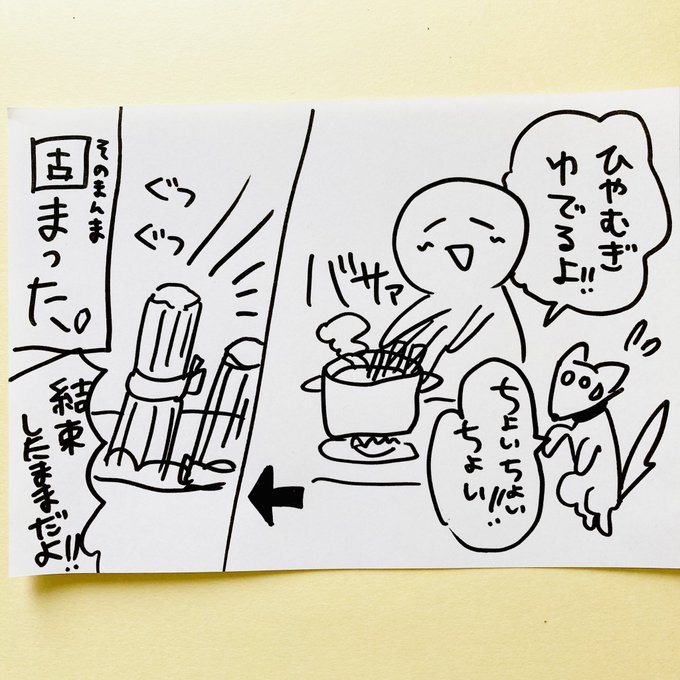 ひやむぎ
ゆでるよ!!
バサァ
ちょいちょい
ちょい!!
ぐつ
ぐつ
そのまんま
固まった。
結束
したままだよ!!